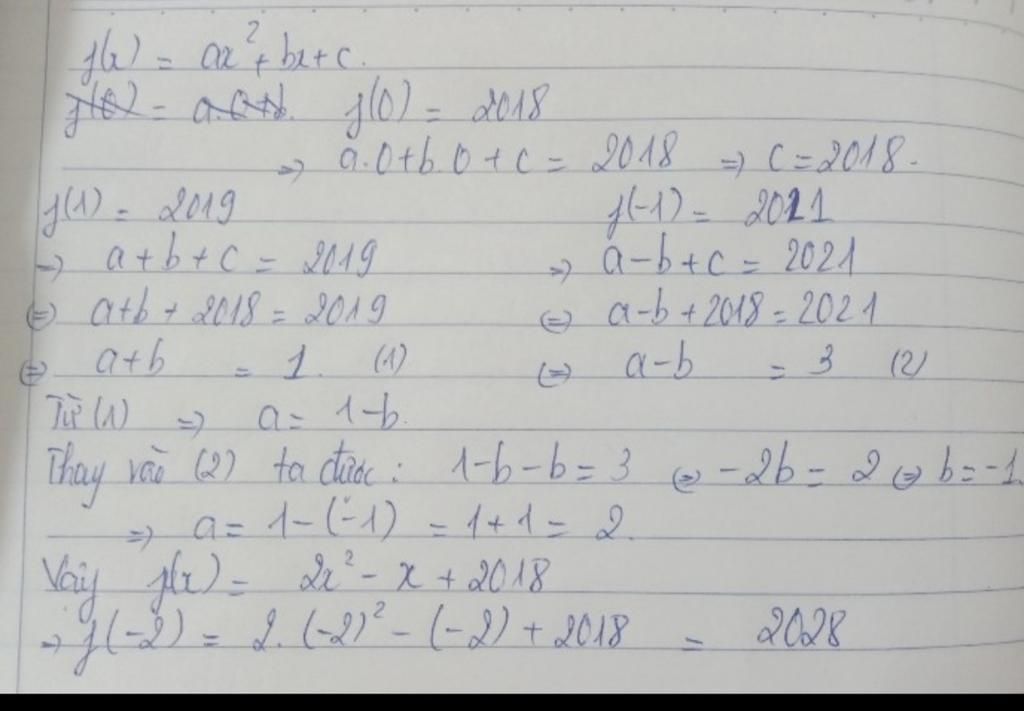 f(x) = ax² + bx + c.
f(0) = a.0+b. f(0) = 2018
=> a.0 + b.0 + c = 2018 => c = 2018.
f(1) = 2019 f(-1) = 2021
=> a + b + c = 2019 => a - b + c = 2021
<=> a+b + 2018 = 2019 <=> a-b + 2018 = 2021
<=> a+b = 1. (1) <=> a-b = 3 (2)
Từ (1) => a = 1-b.
Thay vào (2) ta được: 1-b-b = 3 <=> -2b = 2 <=> b = -1.
=> a = 1-(-1) = 1+1 = 2.
Vậy f(x) = 2x² - x + 2018
=> f(-2) = 2.(-2)² - (-2) + 2018 = 2028